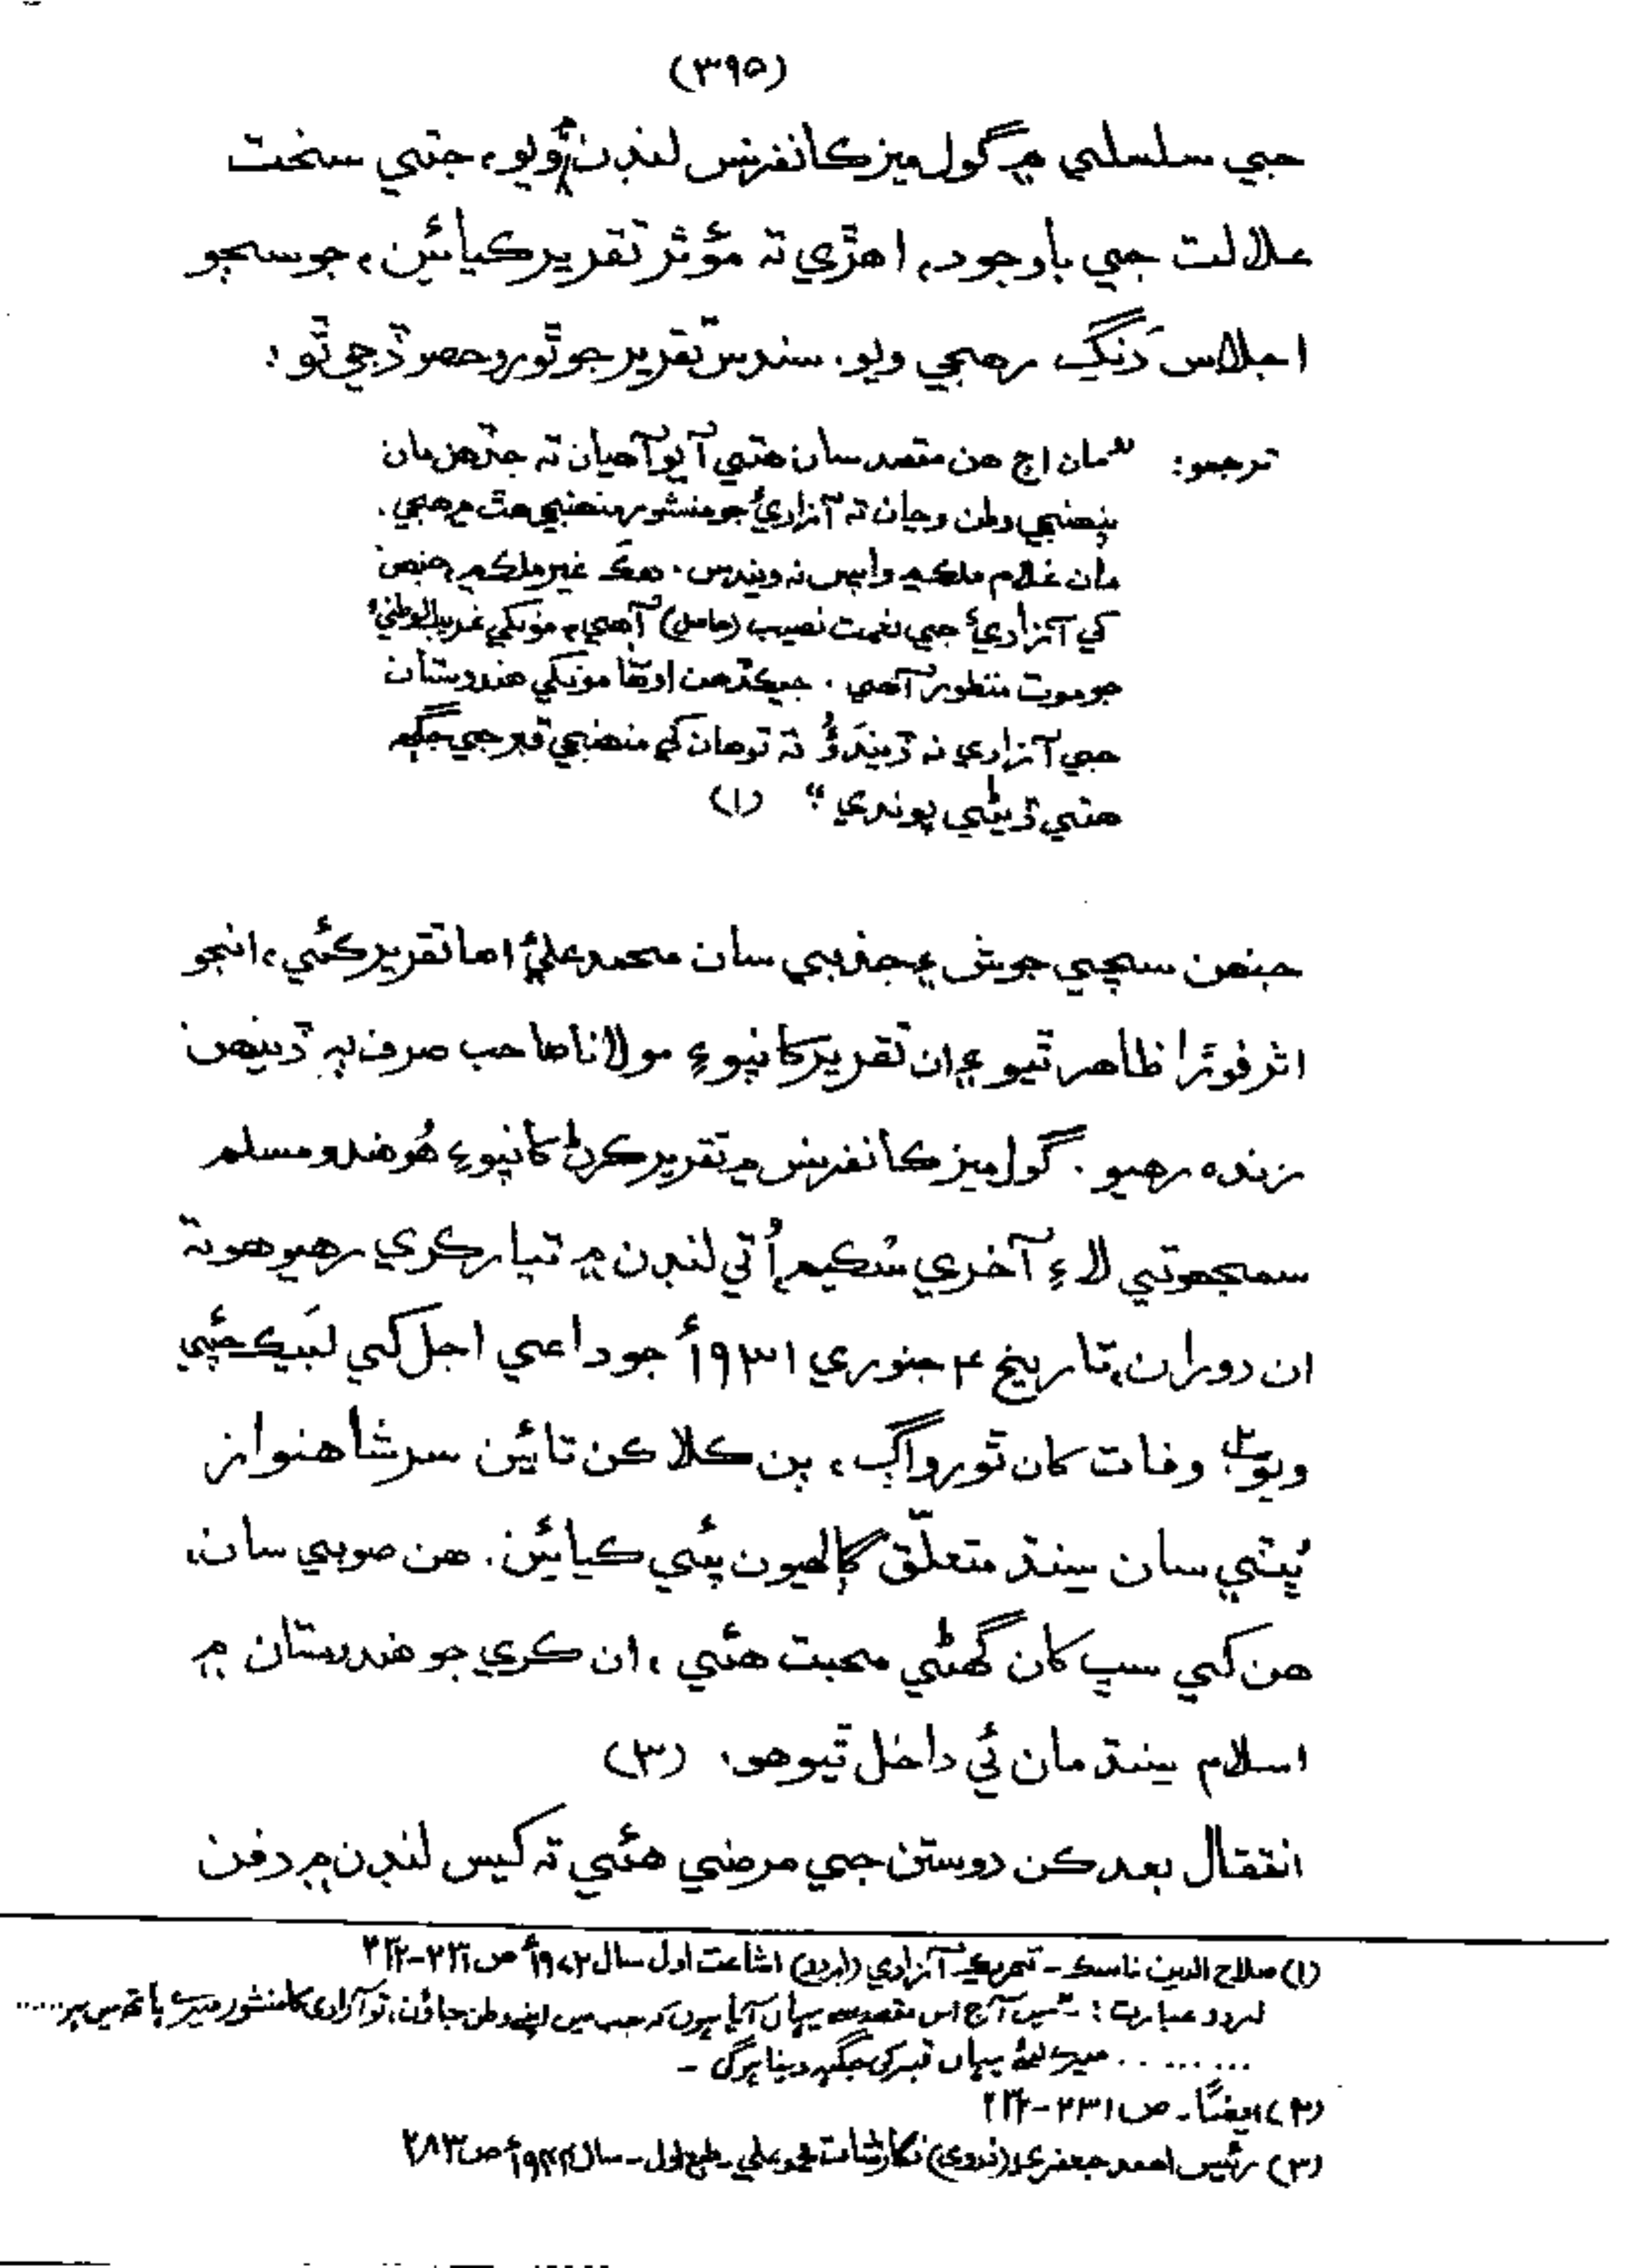 (۳۹۵)
جي سلسلي ۾ گول ميز ڪانفرنس لنڊن ۾ ويو، جتي سخت
علالت جي باوجود، اهڙي ته مؤثر تقرير ڪيائين، جو سڄو
اجلاس دَنگ رهجي ويو. سندس تقرير جو ٿورو حصو ڏجي ٿو:
ترجمو: "مان اڄ هن مقصد سان هتي آيو آهيان ته جڏهن مان
پنهنجي وطن وڃان ته آزاديءَ جو منشور منهنجي هٿ ۾ هجي.
مان غلام ملڪ ۾ واپس نه ويندس. هڪ غير ملڪ ۾ جنهن
کي آزاديءَ جي نعمت نصيب (حاصل) آهي، مونکي غريب الوطنيءَ
جو موت منظور آهي. جيڪڏهن اوهان مونکي هندوستان
جي آزادي نه ڏيندؤ ته توهان کي منهنجي قبر جي جڳهه
هتي ڏيڻي پوندي" (۱)
جنهن سچي جوش ۽ جذبي سان محمد عليؒ اها تقرير ڪئي، انجو
اثر فورًا ظاهر ٿيو ۽ ان تقرير کانپوءِ مولانا صاحب صرف ٻه ڏينهن
زنده رهيو. گول ميز ڪانفرنس ۾ تقرير ڪرڻ کانپوءِ هُو هندو مسلم
سمجهوتي لاءِ آخري سُڪيم اُتي لنڊن ۾ تيار ڪري رهيو هو ته
ان دوران، تاريخ ۴ جنوري ۱۹۳۱ءَ جو داعي اجل کي لبيڪ چئي
ويو ۲ وفات کان ٿورو اڳ، ٻن ڪلاڪن تائين سر شاهنواز
ڀُٽي سان سنڌ متعلّق ڳالهيون پئي ڪيائين. هن صوبي سان،
هن کي سڀ کان گهڻي محبت هئي، ان ڪري جو هندوستان ۾
اسلام سنڌ مان ئي داخل ٿيو هو. (۳)
انتقال بعد ڪن دوستن جي مرضي هئي ته کيس لنڊن ۾ دفن
(۱) صلاح الدين ناسڪ ـ تحريڪ آزادي (اردو) اشاعت اول سال ص ۲۳۱-۲۳۲
اردو عبارت: "میں آج اس مقصد سے یہاں آیا ہوں کہ جب میں اپنے وطن جاؤں، تو آزادی کا منشور میرے ہاتھ میں ہو ......
......... میرے لئے یہاں قبر کی جگہ دینا ہوگی ـ
(۲) ايضًا ـ ص ۲۳۱-۲۳۲
(۳) رئيس احمد جعفري (ندوي) نگارشات محمد علي ـ طبع اول ـ سال ۱۹۴۴ع ص ۲۸۳